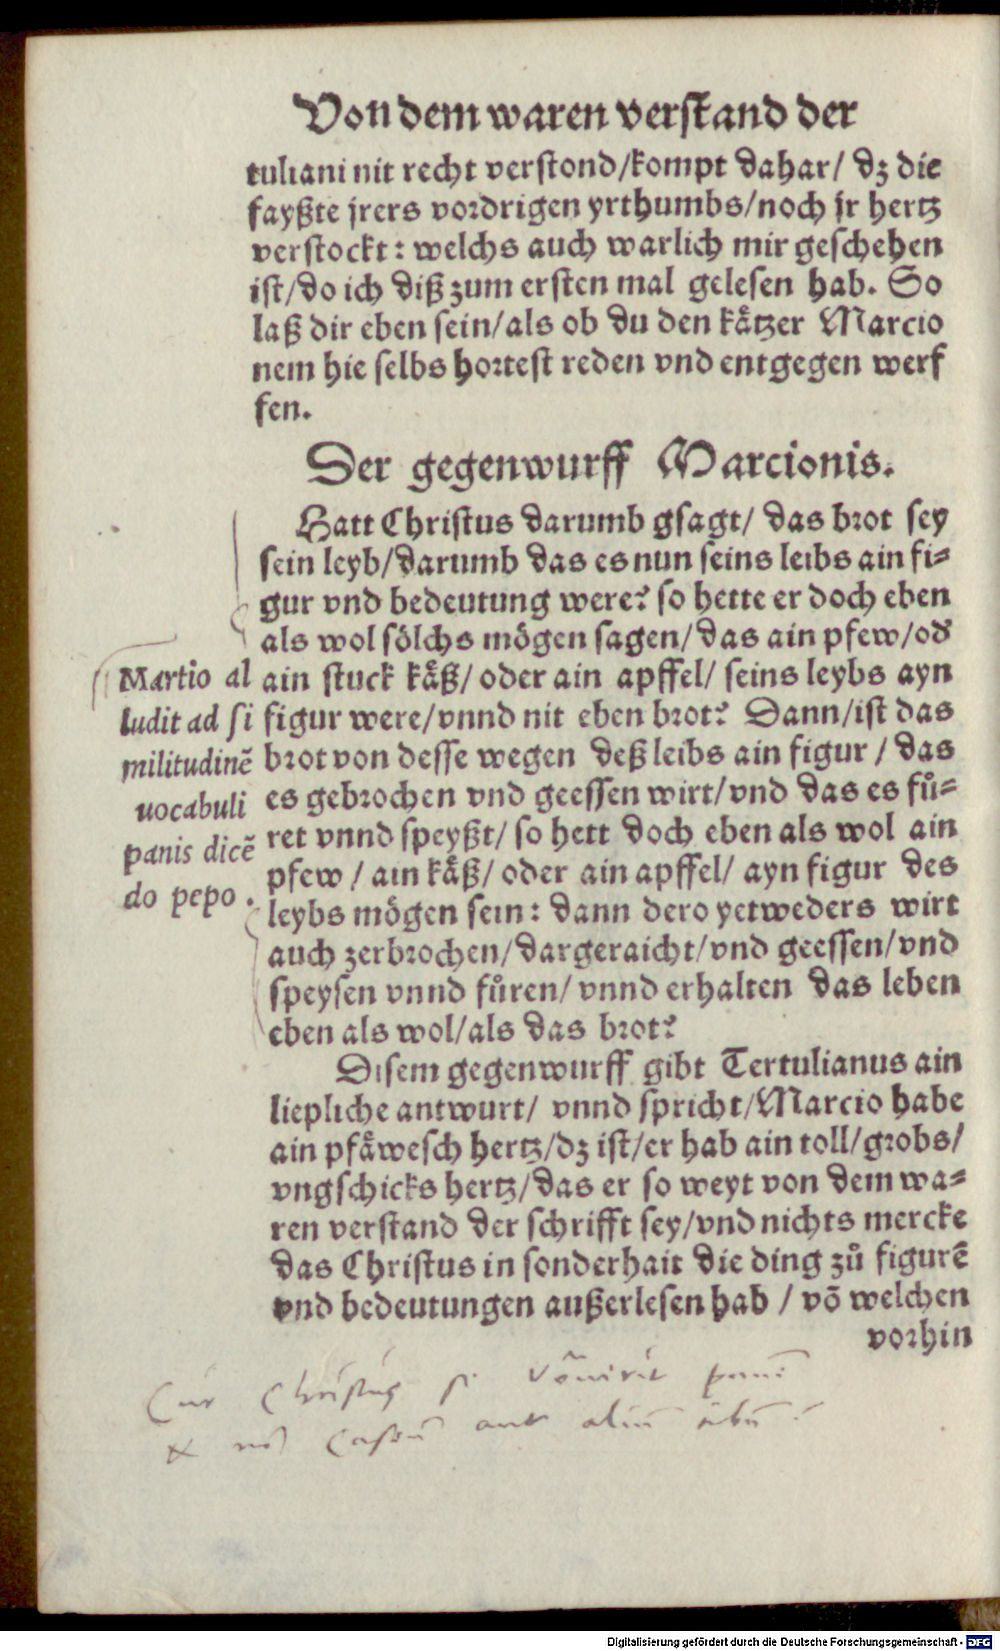 Von dem waren verstand der
tuliani nit recht verstond/kompt dahar/ dz die
fayßte jrers vordrigen yrthumbs/noch jr hertz
verstockt: welchs auch warlich mir geschehen
ist/do ich diß zum ersten mal gelesen hab. So
laß dir eben sein/als ob du den kaͤtzer Marcio
nem hie selbs hortest reden vnd entgegen werf
fen.
Der gegenwurff Marcionis.
Hatt Christus darumb gsagt/ das brot sey
sein leyb/darumb das es nun seins leibs ain fi⸗
gur vnd bedeutung were? so hette er doch eben
als wol soͤlchs moͤgen sagen/das ain pfew/od̕
ain stuck kaͤß/oder ain apffel/ seins leybs ayn
figur were/vnnd nit eben brot? Dann/ist das
brot von desse wegen deß leibs ain figur / das
es gebrochen vnd geessen wirt/vnd das es fuͤ⸗
ret vnnd speyßt/ so hett doch eben als wol ain
pfew / ain kaͤß/ oder ain apffel/ ayn figur des
leybs moͤgen sein: dann dero yetweders wirt
auch zerbrochen/dargeraicht/vnd geessen/vnd
speysen vnnd fuͤren/ vnnd erhalten das leben
eben als wol/als das brot?
Martio al
ludit ad si
militudinē
uocabuli
panis dicē
do pepo.
Disem gegenwurff gibt Tertulianus ain
liepliche antwurt/ vnnd spricht/Marcio habe
ain pfaͤwesch hertz/dz ist/er hab ain toll/grobs/
vngschicks hertz/das er so weyt von dem wa⸗
ren verstand der schrifft sey/vnd nichts mercke
das Christus in sonderhait die ding zuͦ figurē
vnd bedeutungen außerlesen hab / vō welchen
vorhin
Cur Christus panē
& nō caseū aut aliū cibū